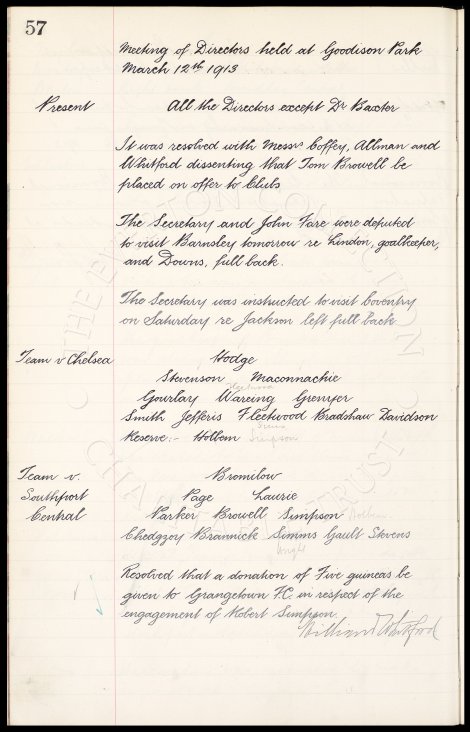 57
Meeting of Directors held at Goodison Park
March 12th 1913
Present All the Directors except Dr Baxter
It was resolved with Messrs Coffey, Allman and
Whitford dissenting that Tom Browell be
placed on offer to Clubs
The Secretary and John Fare were deputed
to visit Barnsley tomorrow re Lindon, goalkeeper,
and Downs, full back.
The Secretary was instructed to visit Coventry
on Saturday re Jackson left full back
Team v Chelsea Hodge
Stevenson Maconnachie
Gourlay Wareing Grenyer
Smith Jefferis Fleetwood Bradshaw Davidson
Reserve:- Holbem Simpson
Team v. Bromilow
Southport Page Laurie
Central Parker Browell Simpson
Chedgzoy Brannick Simms Gault Stevens
Resolved that a donation of Five guineas be
given to Grangetown F.C. in respect of the
engagement of Robert Simpson.
William Whitford
THE EVERTON COLLECTION
CHARITABLE TRUST